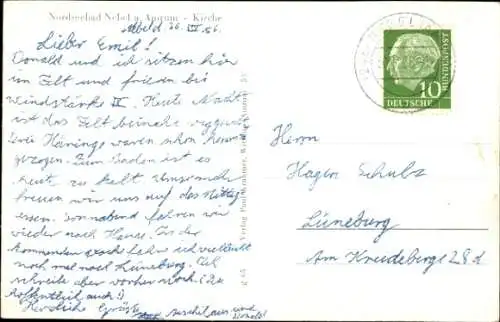 Nordseebad Nebel a. Amrum - Kirche
26. VII 56.
Lieber Emil!
Donald und ich sitzen hier
im Zelt und frieren bei
Windstärke IX. Heute Nacht
ist das Zelt beinahe weggeweht
Zwei Häringe waren schon heraus
gezogen. Zum Baden ist es
heute zu kalt. Umsomehr
freuen wir uns auf das Mittag
essen. Sonnabend fahren wir
wieder nach Hause. In der
kommenden Woche fahre ich vielleicht
noch mal nach Lüneburg. Ich
schreibe aber vorher noch. (Du
hoffentlich auch!)
Herzliche Grüße
und
Donald
Verlag Paul
DEUTSCHE
BUNDESPOST
10
Herrn
Hagen Schulz
Lüneburg
Am Kreideberg 28d